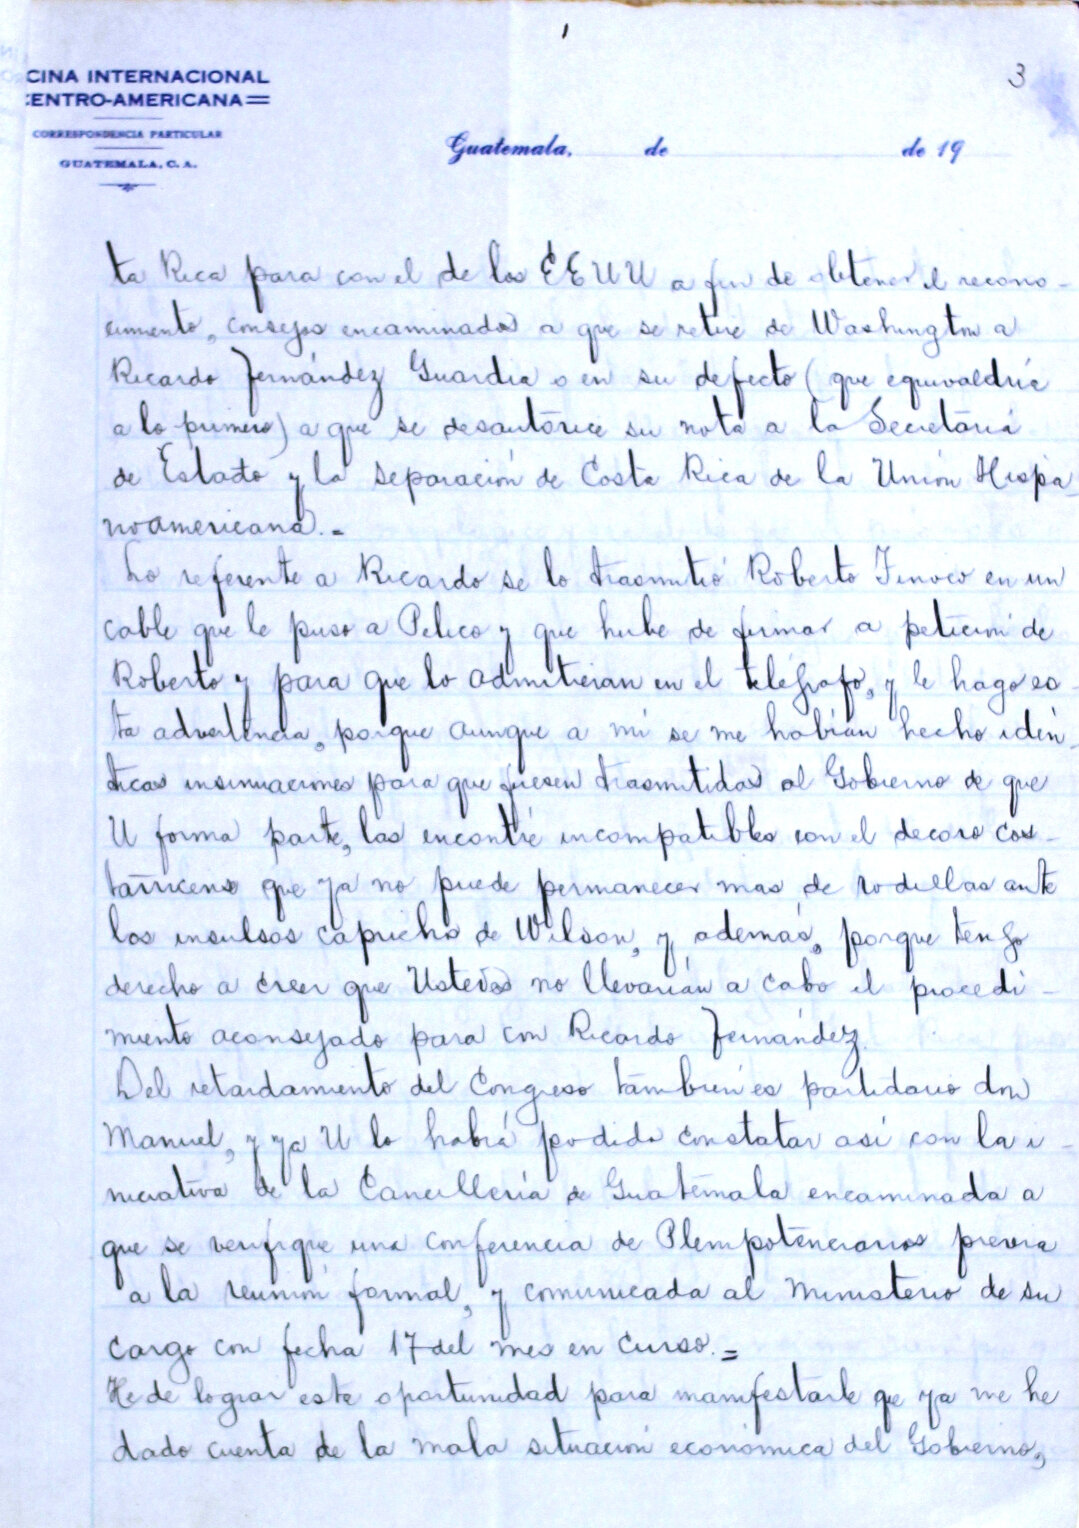 3
CINA INTERNACIONAL
ENTRO-AMERICANA
CORRESPONDENCIA PARTICULAR
GUATEMALA, C. A.
Guatemala, de de 19
ta Rica para con el de los EEUU a fin de obtener el recono-
cimiento, consejos encaminados a que se retire de Washington a
Ricardo Fernández Guardia o en su defecto (que equivaldría
a lo primero) a que se desautorice su nota a la Secretaría
de Estado y la separación de Costa Rica de la Unión Hispa-
noamericana.=
Lo referente a Ricardo se lo trasmitió Roberto Tinoco en un
cable que le puso a Pelico y que hube de firmar a petición de
Roberto y para que lo admitieran en el telégrafo, y le hago es-
ta advertencia, porque aunque a mí se me habían hecho idén-
ticas insinuaciones para que fuesen trasmitidas al Gobierno de que
U forma parte, las encontré incompatibles con el decoro cos-
tarricense que ya no puede permanecer mas de rodillas ante
los insulsos caprichos de Wilson, y además, porque tengo
derecho a creer que Ustedes no llevarían a cabo el procedi-
miento aconsejado para con Ricardo Fernández.
Del retardamiento del Congreso también es partidario don
Manuel, y ya U lo habrá podido constatar así con la i-
niciativa de la Cancillería de Guatemala encaminada a
que se verifique una conferencia de Plenipotenciarios previa
a la reunión formal, y comunicada al Ministerio de su
cargo con fecha 17 del mes en curso.=
He de lograr esta oportunidad para manifestarle que ya me he
dado cuenta de la mala situación económica del Gobierno,